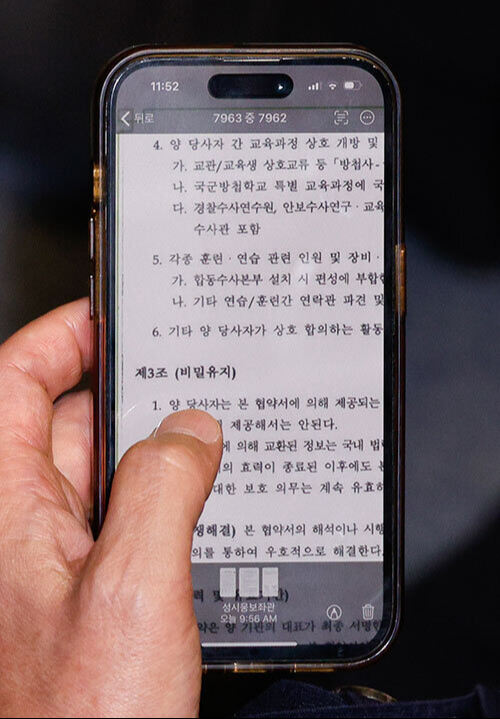 11:52
뒤로
7963 중 7962
4. 양 당사자 간 교육과정 상호 개방 및
가. 교관/교육생 상호교류 등 「방첩사-
나. 국군방첩학교 특별 교육과정에 국
다. 경찰수사연수원, 안보수사연구·교육
수사관 포함
5. 각종 훈련·연습 관련 인원 및 장비·
가. 합동수사본부 설치 시 편성에 부합한
나. 기타 연습/훈련간 연락관 파견 및
6. 기타 양 당사자가 상호 합의하는 활동
제3조 (비밀유지)
1. 양 당사자는 본 협약서에 의해 제공되는
제공해서는 안된다.
에 의해 교환된 정보는 국내 법
의 효력이 종료된 이후에도
대한 보호 의무는 계속 유효
쟁해결) 본 협약서의 해석이나 시행
의를 통하여 우호적으로 해결한다.
력 및
성시웅보좌관
오늘 9:56 AM
약은 양 기관의 대표가 최종 서명한